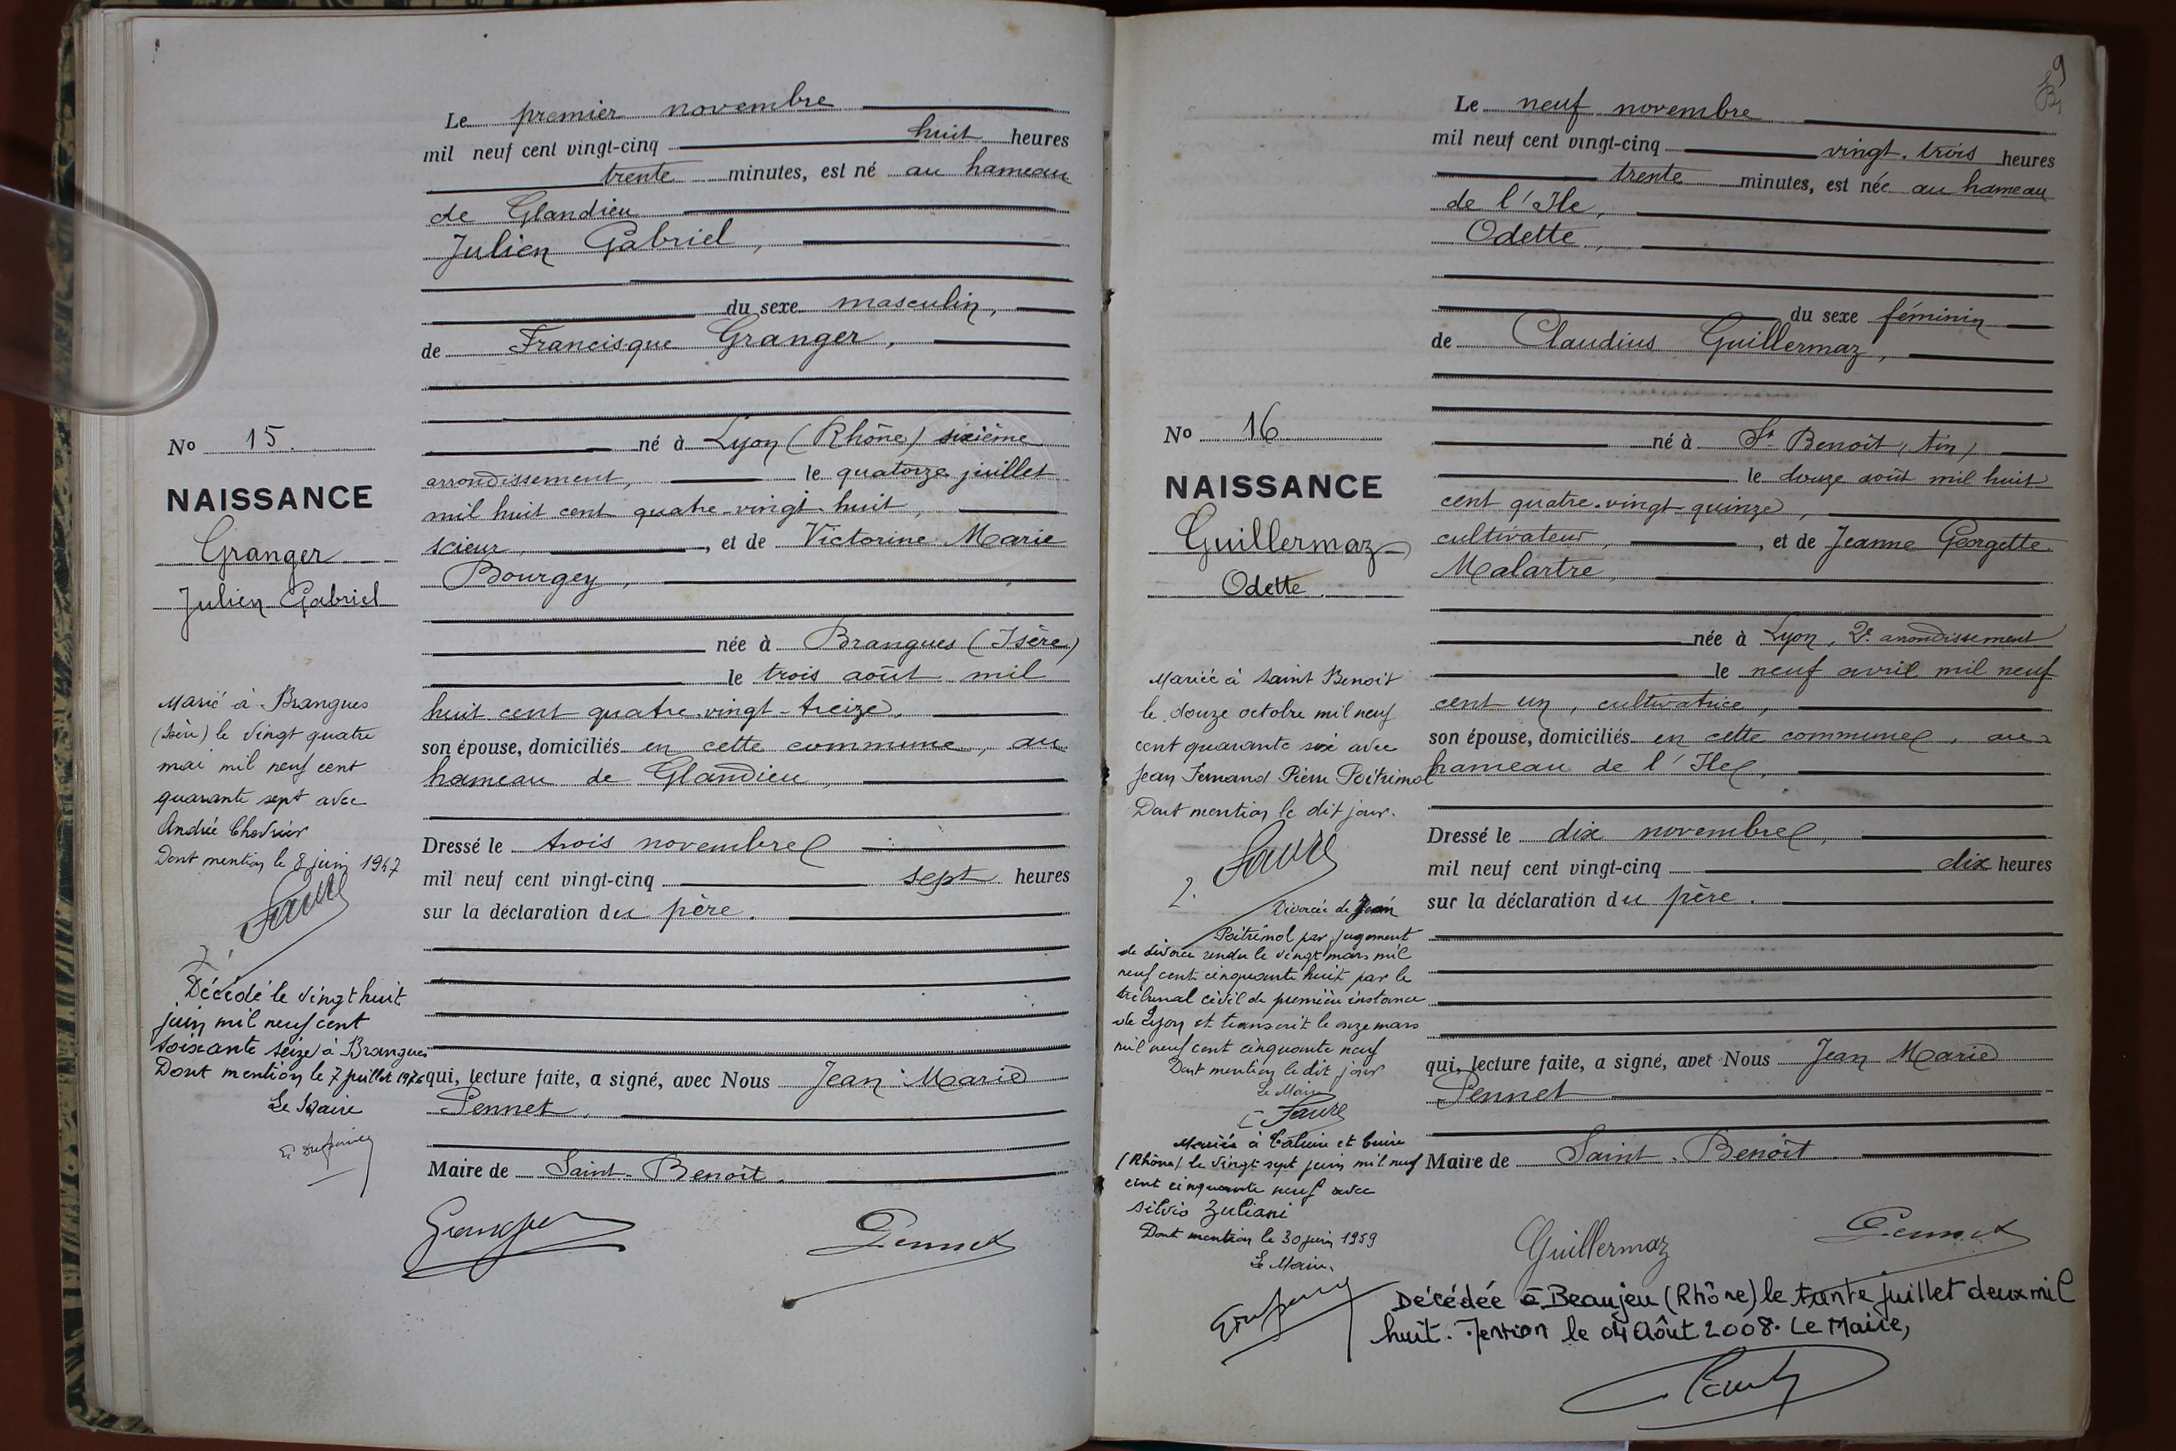 Le premier novembre
mil neuf cent vingt-cinq huit heures
trente minutes, est né au hameau
de Glandieu
Julien Gabriel,
du sexe masculin,
de Francisque Granger,
né à Lyon (Rhône) sixième
arrondissement, le quatorze juillet
mil huit cent quatre-vingt-huit,
scieur, et de Victorine Marie
Bourgey,
née à Brangues (Isère)
le trois août mil
huit cent quatre-vingt-treize,
son épouse, domiciliés en cette commune, au
hameau de Glandieu,
Dressé le trois novembre
mil neuf cent vingt-cinq sept heures
sur la déclaration du père.
qui, lecture faite, a signé, avec Nous Jean-Marie
Pennet,
Maire de Saint-Benoît.
Granger
Pennet
No 15.
NAISSANCE
Granger
Julien Gabriel
Marié à Brangues
(Isère) le vingt quatre
mai mil neuf cent
quarante sept avec
Andrée Chevrier
Dont mention le 8 juin 1947
Faure
2.
Décédé le vingt huit
juin mil neuf cent
soixante seize à Brangues
Dont mention le 7 juillet 1976
Le Maire
9
Le neuf novembre
mil neuf cent vingt-cinq vingt-trois heures
trente minutes, est née au hameau
de l'Ile,
Odette,
du sexe féminin
de Claudius Guillermaz,
né à St Benoît (Ain)
le douze août mil huit
cent quatre-vingt-quinze,
cultivateur, et de Jeanne Georgette
Malartre,
née à Lyon, 2e arrondissement
le neuf avril mil neuf
cent un, cultivatrice,
son épouse, domiciliés en cette commune, au
hameau de l'Ile,
Dressé le dix novembre,
mil neuf cent vingt-cinq dix heures
sur la déclaration du père.
qui, lecture faite, a signé, avec Nous Jean-Marie
Pennet
Maire de Saint-Benoît
Guillermaz
Pennet
Décédée à Beaujeu (Rhône) le trente juillet deux mil
huit. Mention le 04 Août 2008. Le Maire,
No 16
NAISSANCE
Guillermaz
Odette
Mariée à Saint Benoit
le douze octobre mil neuf
cent quarante six avec
Jean Fernand Pierre Poitrimol
Dont mention le dit jour.
Faure
2.
Divorcée de Jean
Poitrimol par jugement
de divorce rendu le vingt mars mil
neuf cent cinquante huit par le
tribunal civil de première instance
de Lyon et transcrit le onze mars
mil neuf cent cinquante neuf
Dont mention le dit jour
Le Maire
Faure
Mariée à Caluire et Cuire
(Rhône) le vingt sept juin mil neuf
cent cinquante neuf avec
Silvio Zuliani
Dont mention le 30 juin 1959
Le Maire.